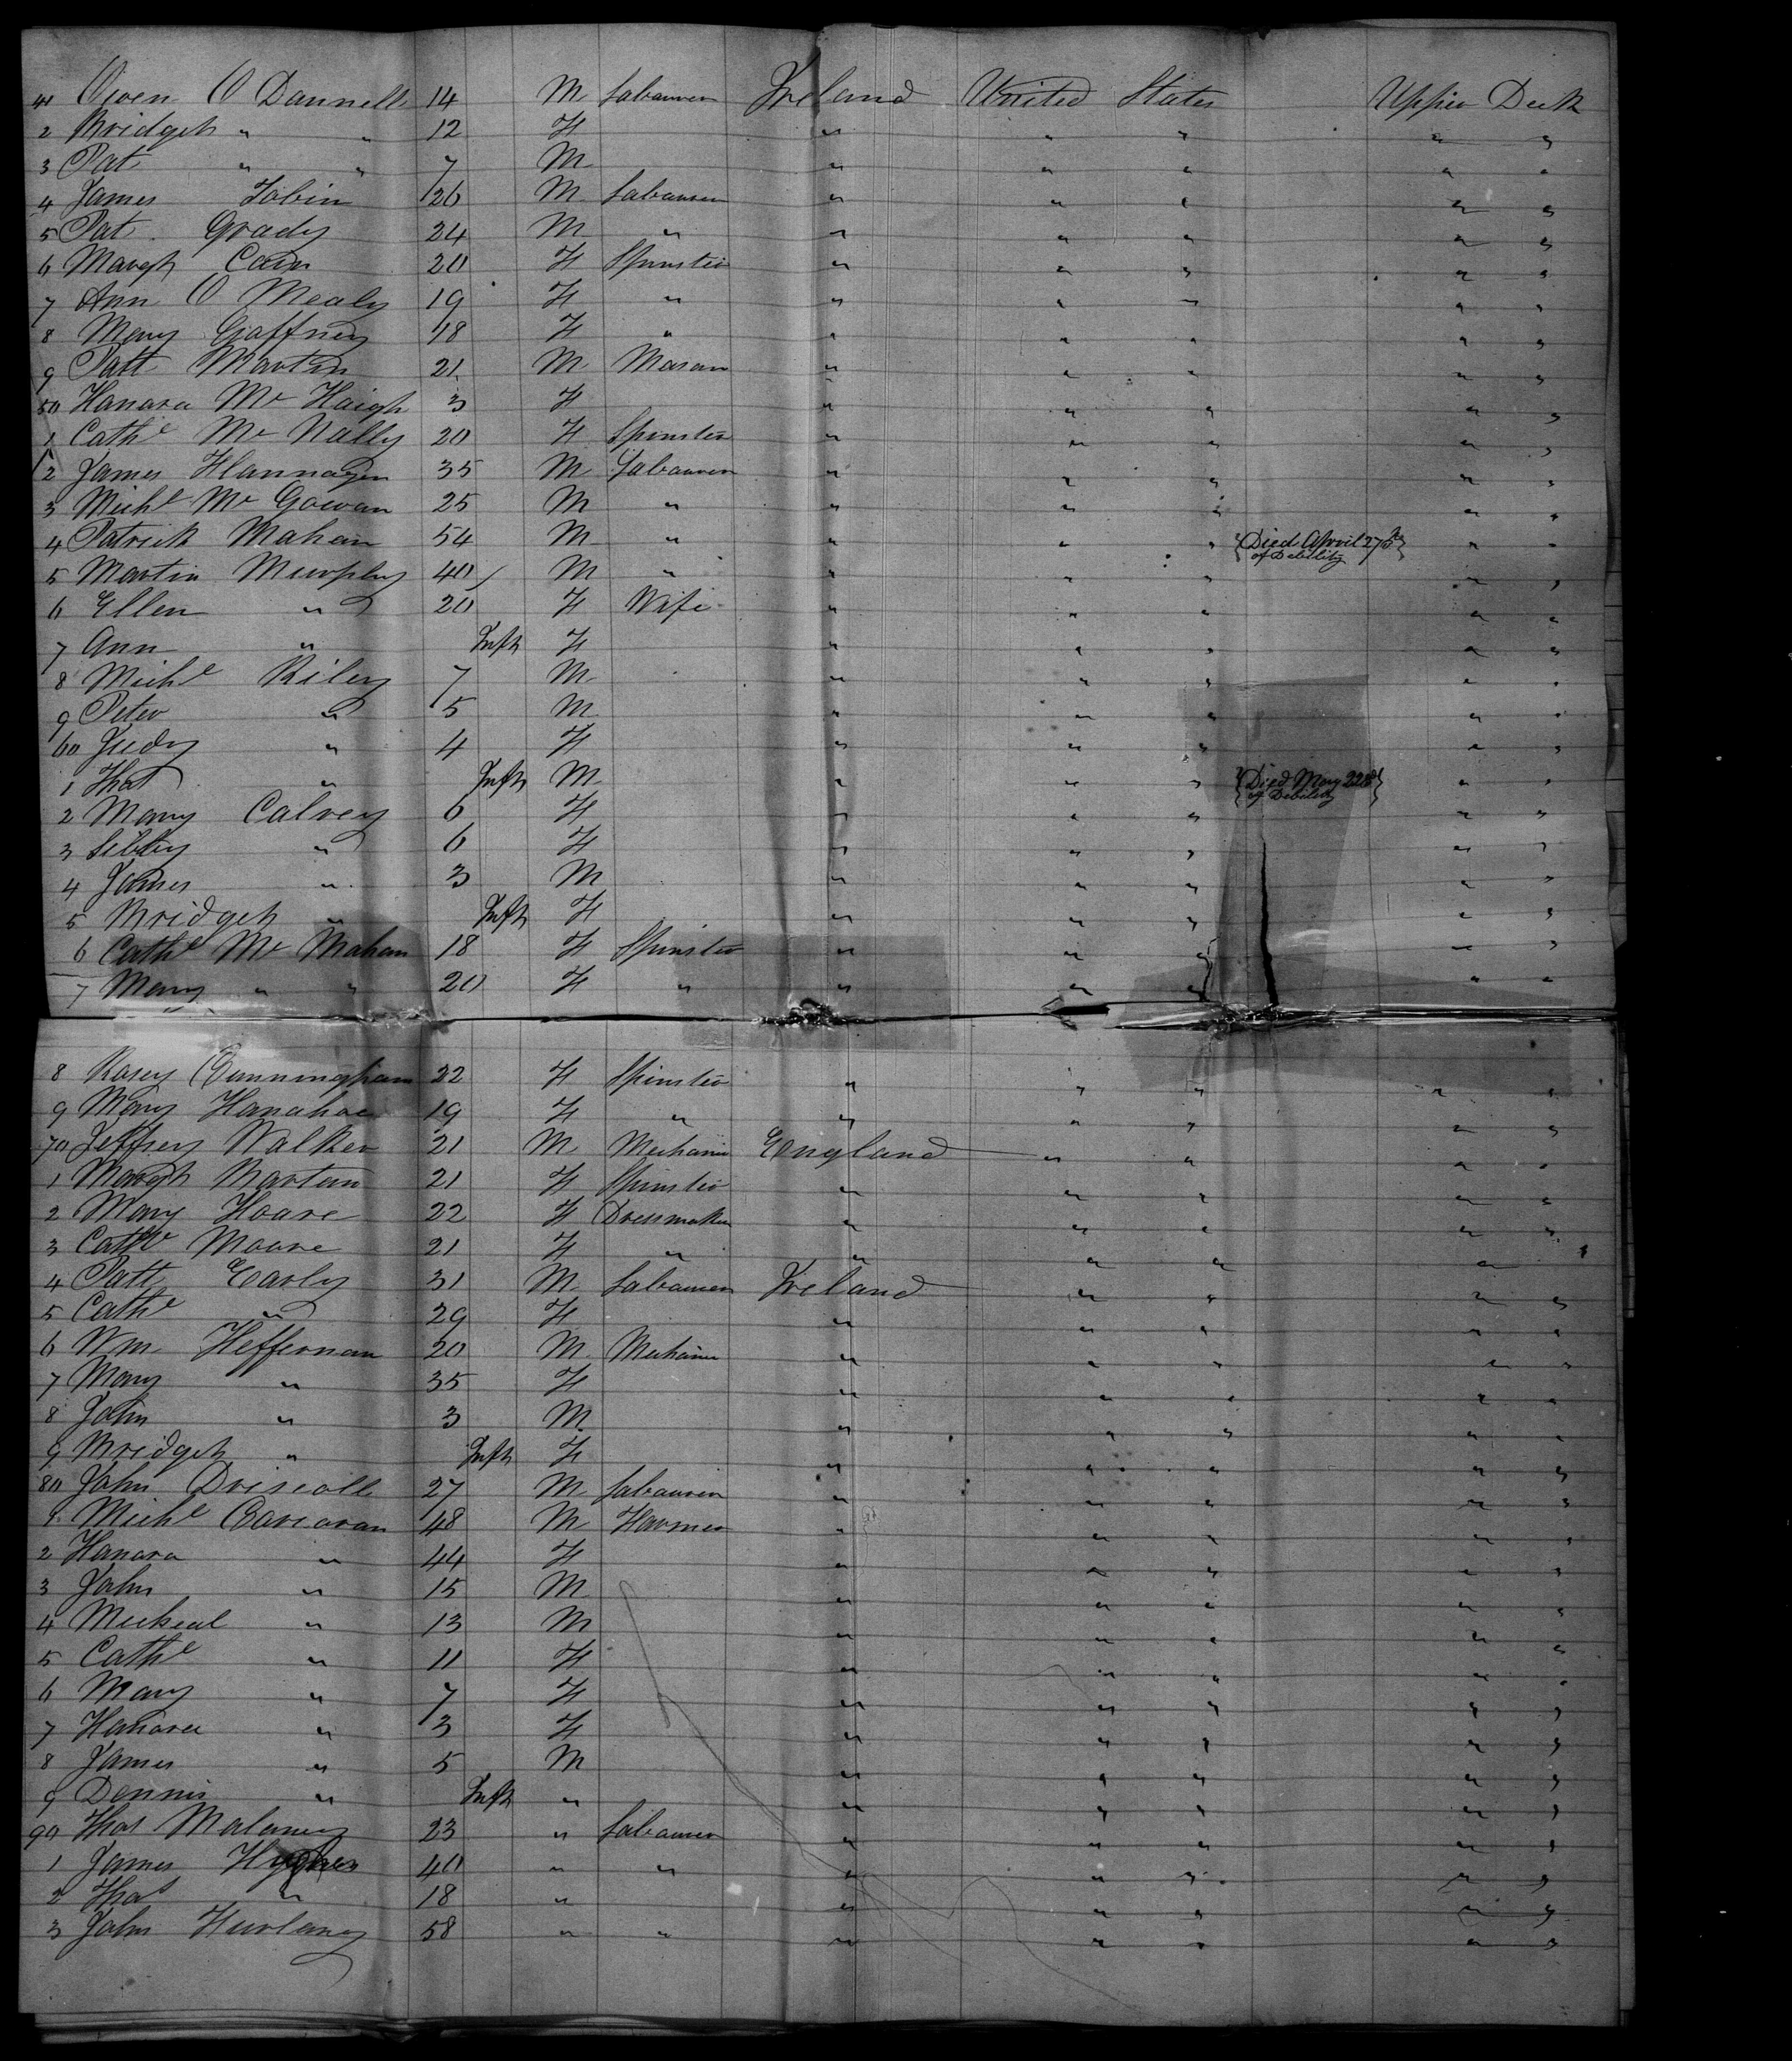 41 Owen O Dannell 14 M Labourer Ireland United States Upper Deck
2 Bridget " " 12 F " " " " "
3 Pat " " 7 M " " " " "
4 James Tobin 26 M Labourer " " " " "
5 Pat Grady 24 M " " " " " "
6 Margt Cain 20 F Spinster " " " " "
7 Ann O Mealy 19 F " " " " " "
8 Mary Gaffney 18 F " " " " " "
9 Patt Martin 21 M Mason " " " " "
50 Hanara Mc Haigh 3 F " " " " "
1 Cathe Mc Nally 20 F Spinster " " " " "
2 James Hannagen 35 M Labourer " " " " "
3 Michl Mc Gowan 25 M " " " " " "
4 Patrick Mahan 54 M " " " " Died April 27th of Debility " "
5 Martin Murphy 40 M " " " " " "
6 Ellen " 20 F Wife " " " " "
7 Ann " Inft F " " " " "
8 Michl Riley 7 M " " " " "
9 Peter " 5 M " " " " "
60 Judy " 4 F " " " " "
1 Thos " Inft M " " " Died May 22d of Debility " "
2 Mary Calvey 6 F " " " " "
3 Sibby " 6 F " " " " "
4 James " 3 M " " " " "
5 Bridget " Inft F " " " " "
6 Cathe Mc Mahan 18 F Spinster " " " " "
7 Mary " " 20 F " " " " " "
8 Rosey Cunningham 22 F Spinster " " " " "
9 Mary Hanahoe 19 F " " " " " "
70 Jeffrey Walker 21 M Mechanic England " " " "
1 Margt Martin 21 F Spinster " " " " "
2 Mary Hoare 22 F Dressmaker " " " " "
3 Cathe Moore 21 F " " " " "
4 Patt Early 31 M Labourer Ireland " " " "
5 Cathe " 29 F " " " " "
6 Wm Heffernan 20 M Mechanic " " " " "
7 Mary " 35 F " " " " "
8 John " 3 M " " " " "
9 Bridget " Inft F " " " " "
80 John Driscoll 27 M Labourer " " " " "
1 Michl Corcoran 48 M Farmer " " " " "
2 Hanara " 44 F " " " " "
3 John " 15 M " " " " "
4 Micheal " 13 M " " " " "
5 Cathe " 11 F " " " " "
6 Mary " 7 F " " " " "
7 Hanara " 3 F " " " " "
8 James " 5 M " " " " "
9 Dennis " Inft " " " " " "
90 Thos Malaney 23 " Labourer " " " " "
1 James Hughes 40 " " " " " " "
2 Thos " 18 " " " " " "
3 John Hurlany 58 " " " " " " "